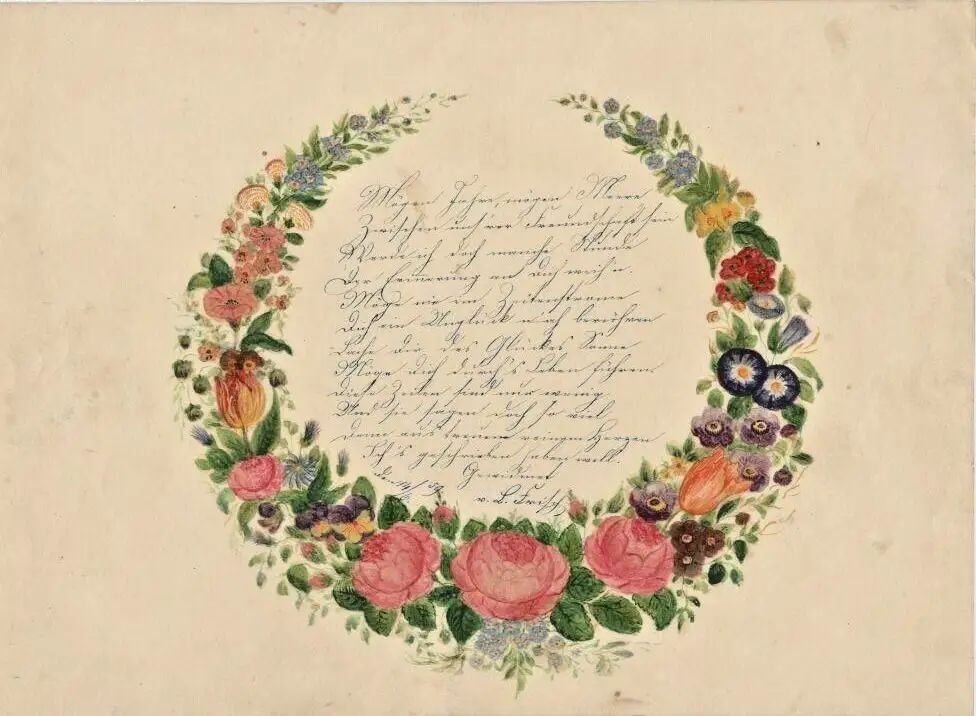 Mögen Jahre, mögen Meere
Zwischen uns'rer Freundschaft sein
Werde ich doch manche Stunde
Der Erinnerung an dich weih'n.
Möge nie im Zeitenstrome
Dich ein Unglück nah berühren
Lache dir des Glückes Sonne
Möge dich durch's Leben führen.
Diese Zeilen sind nur wenig
Und sie sagen doch so viel
denn aus treuem reinen Herzen
Ich's geschrieben haben will.
Gewidmet
v. L. Frisch